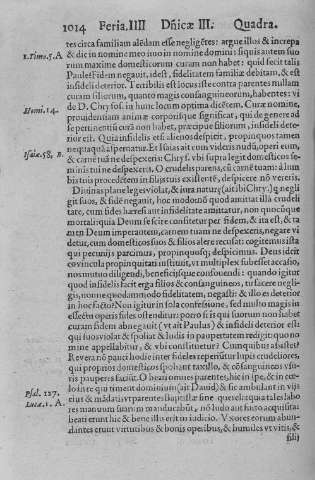 1014 Feria.IIII Dñicæ III. Quadra.
tes circa familiam alẽdam esse negligẽtes: argue illos & increpa
1.Timo.5.A
& dic in nomine meo imo in nomine domini: siquis autem suo
rum maxime domesticorum curam non habet: quid fecit talis
Paule? Fidem negauit, idest, fidelitatem familiæ debitam, & est
infideli deterior. Terribilis est locus iste contra parentes nullam
curam filiorum, quanto magis consanguineorum, habentes: vi
Homi.14.
de D. Chrysos. in hunc locum optima dicẽtem. Curæ nomine,
prouidentiam animæ corporisque significat, qui de genere ad
se pertinentiũ curã non habet, præcipue filiorum, infideli dete-
rior est. Quia infidelis etsi alienos despicit, propinquos tamen
neqꝫ aspernatur. Et Isaias ait cum videris nudũ, operi eum,
Isaiæ.58. B.
& carnẽ tuã ne despexeris: Chrys. vbi supra legit domesticos se-
minis tui ne despexeris. O crudelis parens, si carnẽ tuam: à lum
bis tuis procedẽtem in filijs tuis existentẽ, despicere nõ vereris.
Diuinas plane leges violat, & iura naturę (ait ibi Chry.) q̃ negli
git suos, & fidẽ negauit, hoc modo nõ quod amittat illa crudeli
tate, cum fides hæresi aut infidelitate amittatur, non quocũque
mortali: quia Deum se scire confitetur per fidem, & ita est, & ta
men Deum imperantem, carnem tuam ne despexeris, negare vi
detur, cum domesticos suos & filios alere recusat: cogitemus ista
qui pecunijs parcimus, propinquosq; despicimus. Deus idcir
co vincula propinquitatis instituit, vt multiplex subesset occasio,
nos mutuo diligendi, beneficijsque confouendi: quando igitur
quod infidelis facit erga filios & consanguineos, tu facere negli-
gis, nonne quodammodo fidelitatem, negasti: & illo es deterior
in hoc facto? Non igitur in sola confessione, sed multo magis in
effectu operis fides ostenditur: porro si is qui suorum non habet
curam fidem abnegauit (vt ait Paulus) & infideli deterior est:
qui suos violat & spoliat & ludis in paupertatem redigit quo no
mine appellabitur, & vbi constituetur? Cumquibus assistet?
Reuera nõ pauci hodie inter fideles reperiũtur lupis crudeliores,
qui proprios domesticos spoliant taxillo, & cõsanguineos vsu-
ris pauperes faciũt. O beati omnes parentes, hic in spe, & in cœ-
Psal. 127.
lo in re qui timent dominum (ait Dauid) & sic ambulant in vijs
Lucæ.1. A.
eius & mãdatis vt parentes Baptistæ sine querela: quia tales labo
res manuum suarum manducabũt, nõ ludo aut furto acquisita:
beati erunt hic & bene illis erit in iudicio. Vxores eorum abun-
dantes erunt virtutibus & bonis operibus, & humiles vt vitis, &
filij